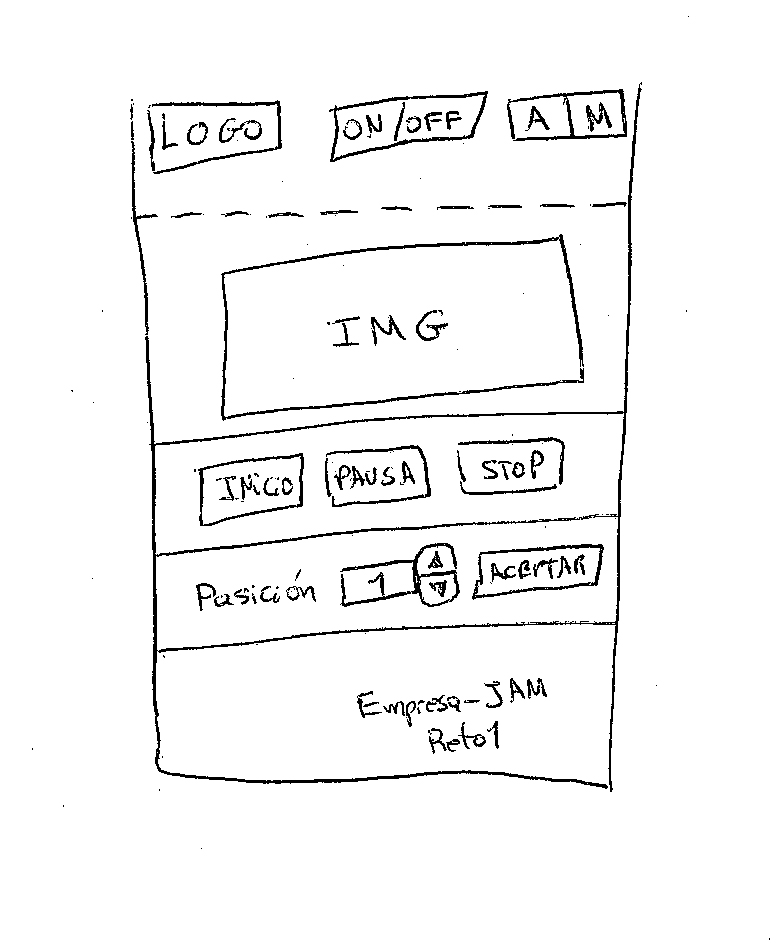 LOGO ON/OFF A M
IMG
INICIO PAUSA STOP
Posición 1 ACEPTAR
Empresa-JAM
Reto1